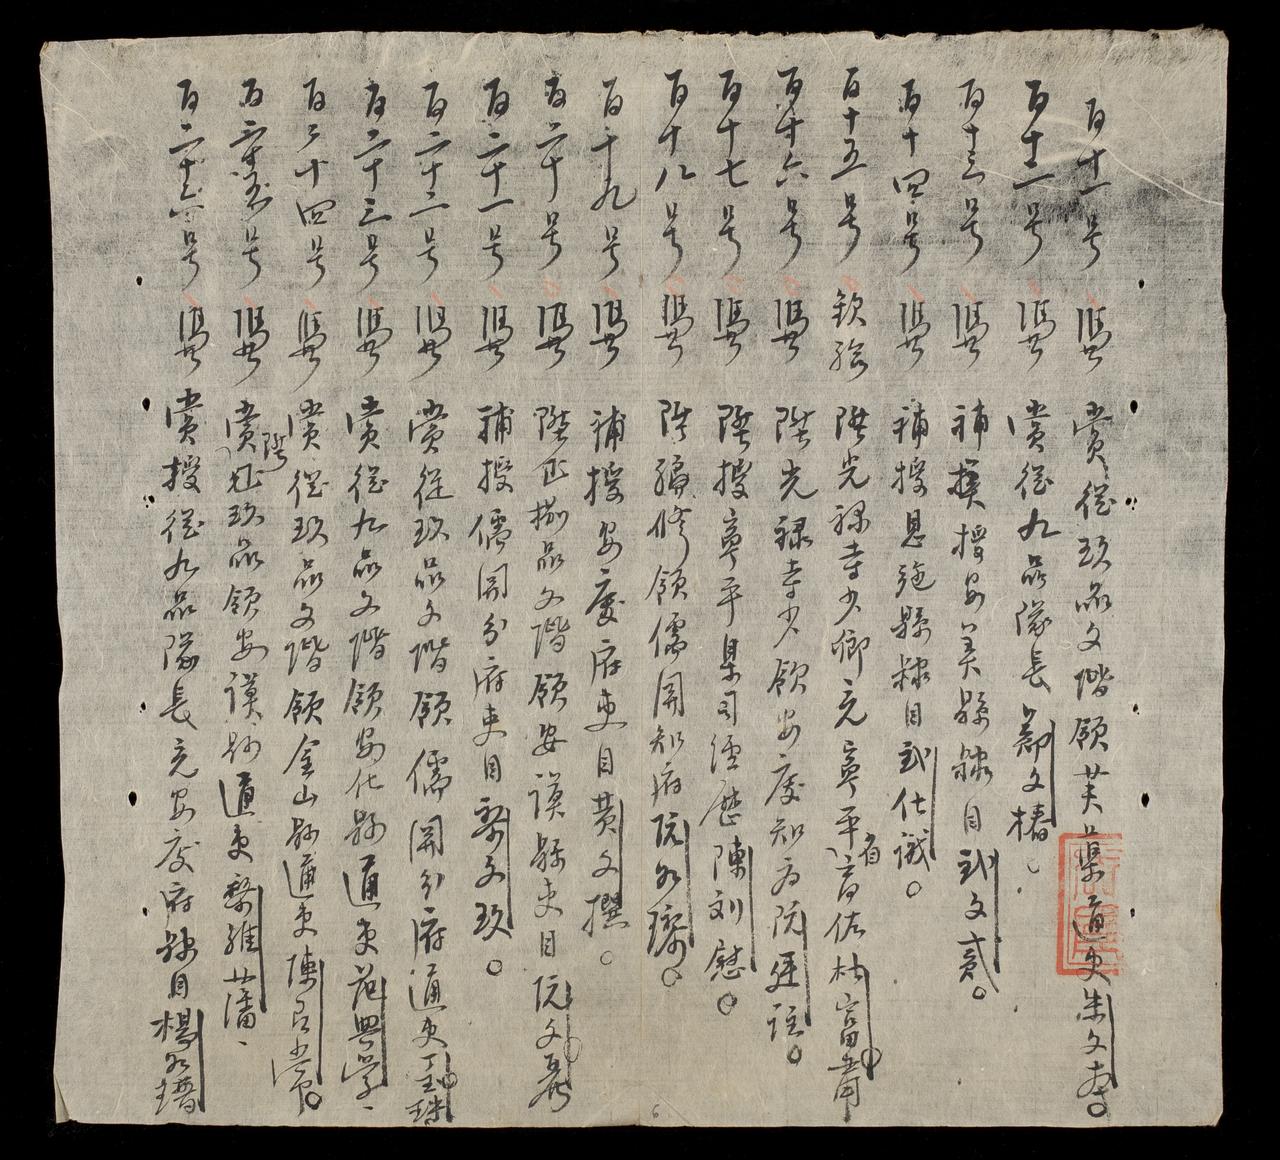 百十一号 憑 賞從玖品文階領芙蕖通吏朱文
百十二号 憑 賞從九品隊長鄭文椿
百十三号 憑 補授安美縣隸目劉文貳
百十四号 憑 補授恩施縣隸目劉仕識
百十五号 欽給 陞光祿寺少卿充寧平省佐杜富肅
百十六号 憑 陞光祿寺少領安慶知府阮廷詮
百十七号 憑 陞授寧平臬司經歷陳刘慰
百十八号 憑 陞編修領儒関知府阮如
百十九号 憑 補授安慶府吏目黄文撰
百二十号 憑 陞正捌品文階領安謨縣吏目阮文
百二十一号 憑 補授儒関分府吏目黎文玖
百二十二号 憑 賞從玖品文階領儒関分府通吏丁珠
百二十三号 憑 賞從九品文階領安化縣通吏范興学
百二十四号 憑 賞從玖品文階領金山縣通吏陳良
百二十五号 憑 賞陞正玖品領安謨縣通吏黎維藩
百二十六号 憑 賞授從九品隊長充安慶府隸目楊如瑨